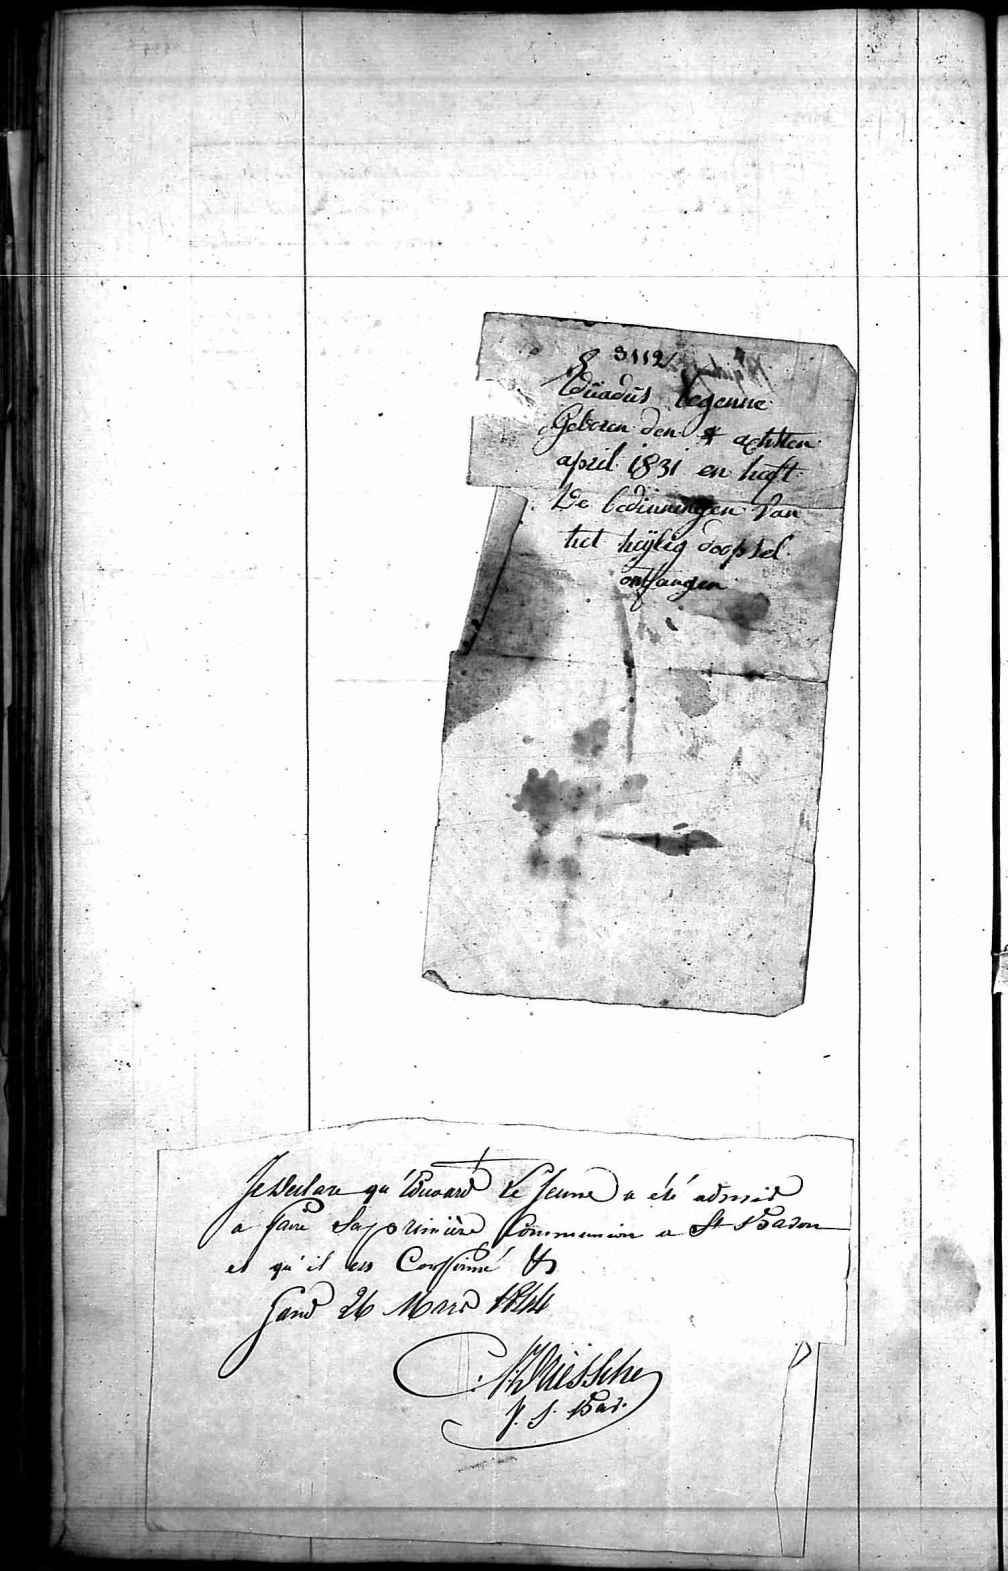 3112
Eduadus Legenne
Geboren den 8 achtten
april 1831 en heeft
De bedinningen Van
het heijlig doopsel
ontfangen
Je Declare qu'Edouard Le Jeune a été admis
a faire Sa première Communion a St Bavon
et qu'il est Confirmé
Gand 26 Mars 1844